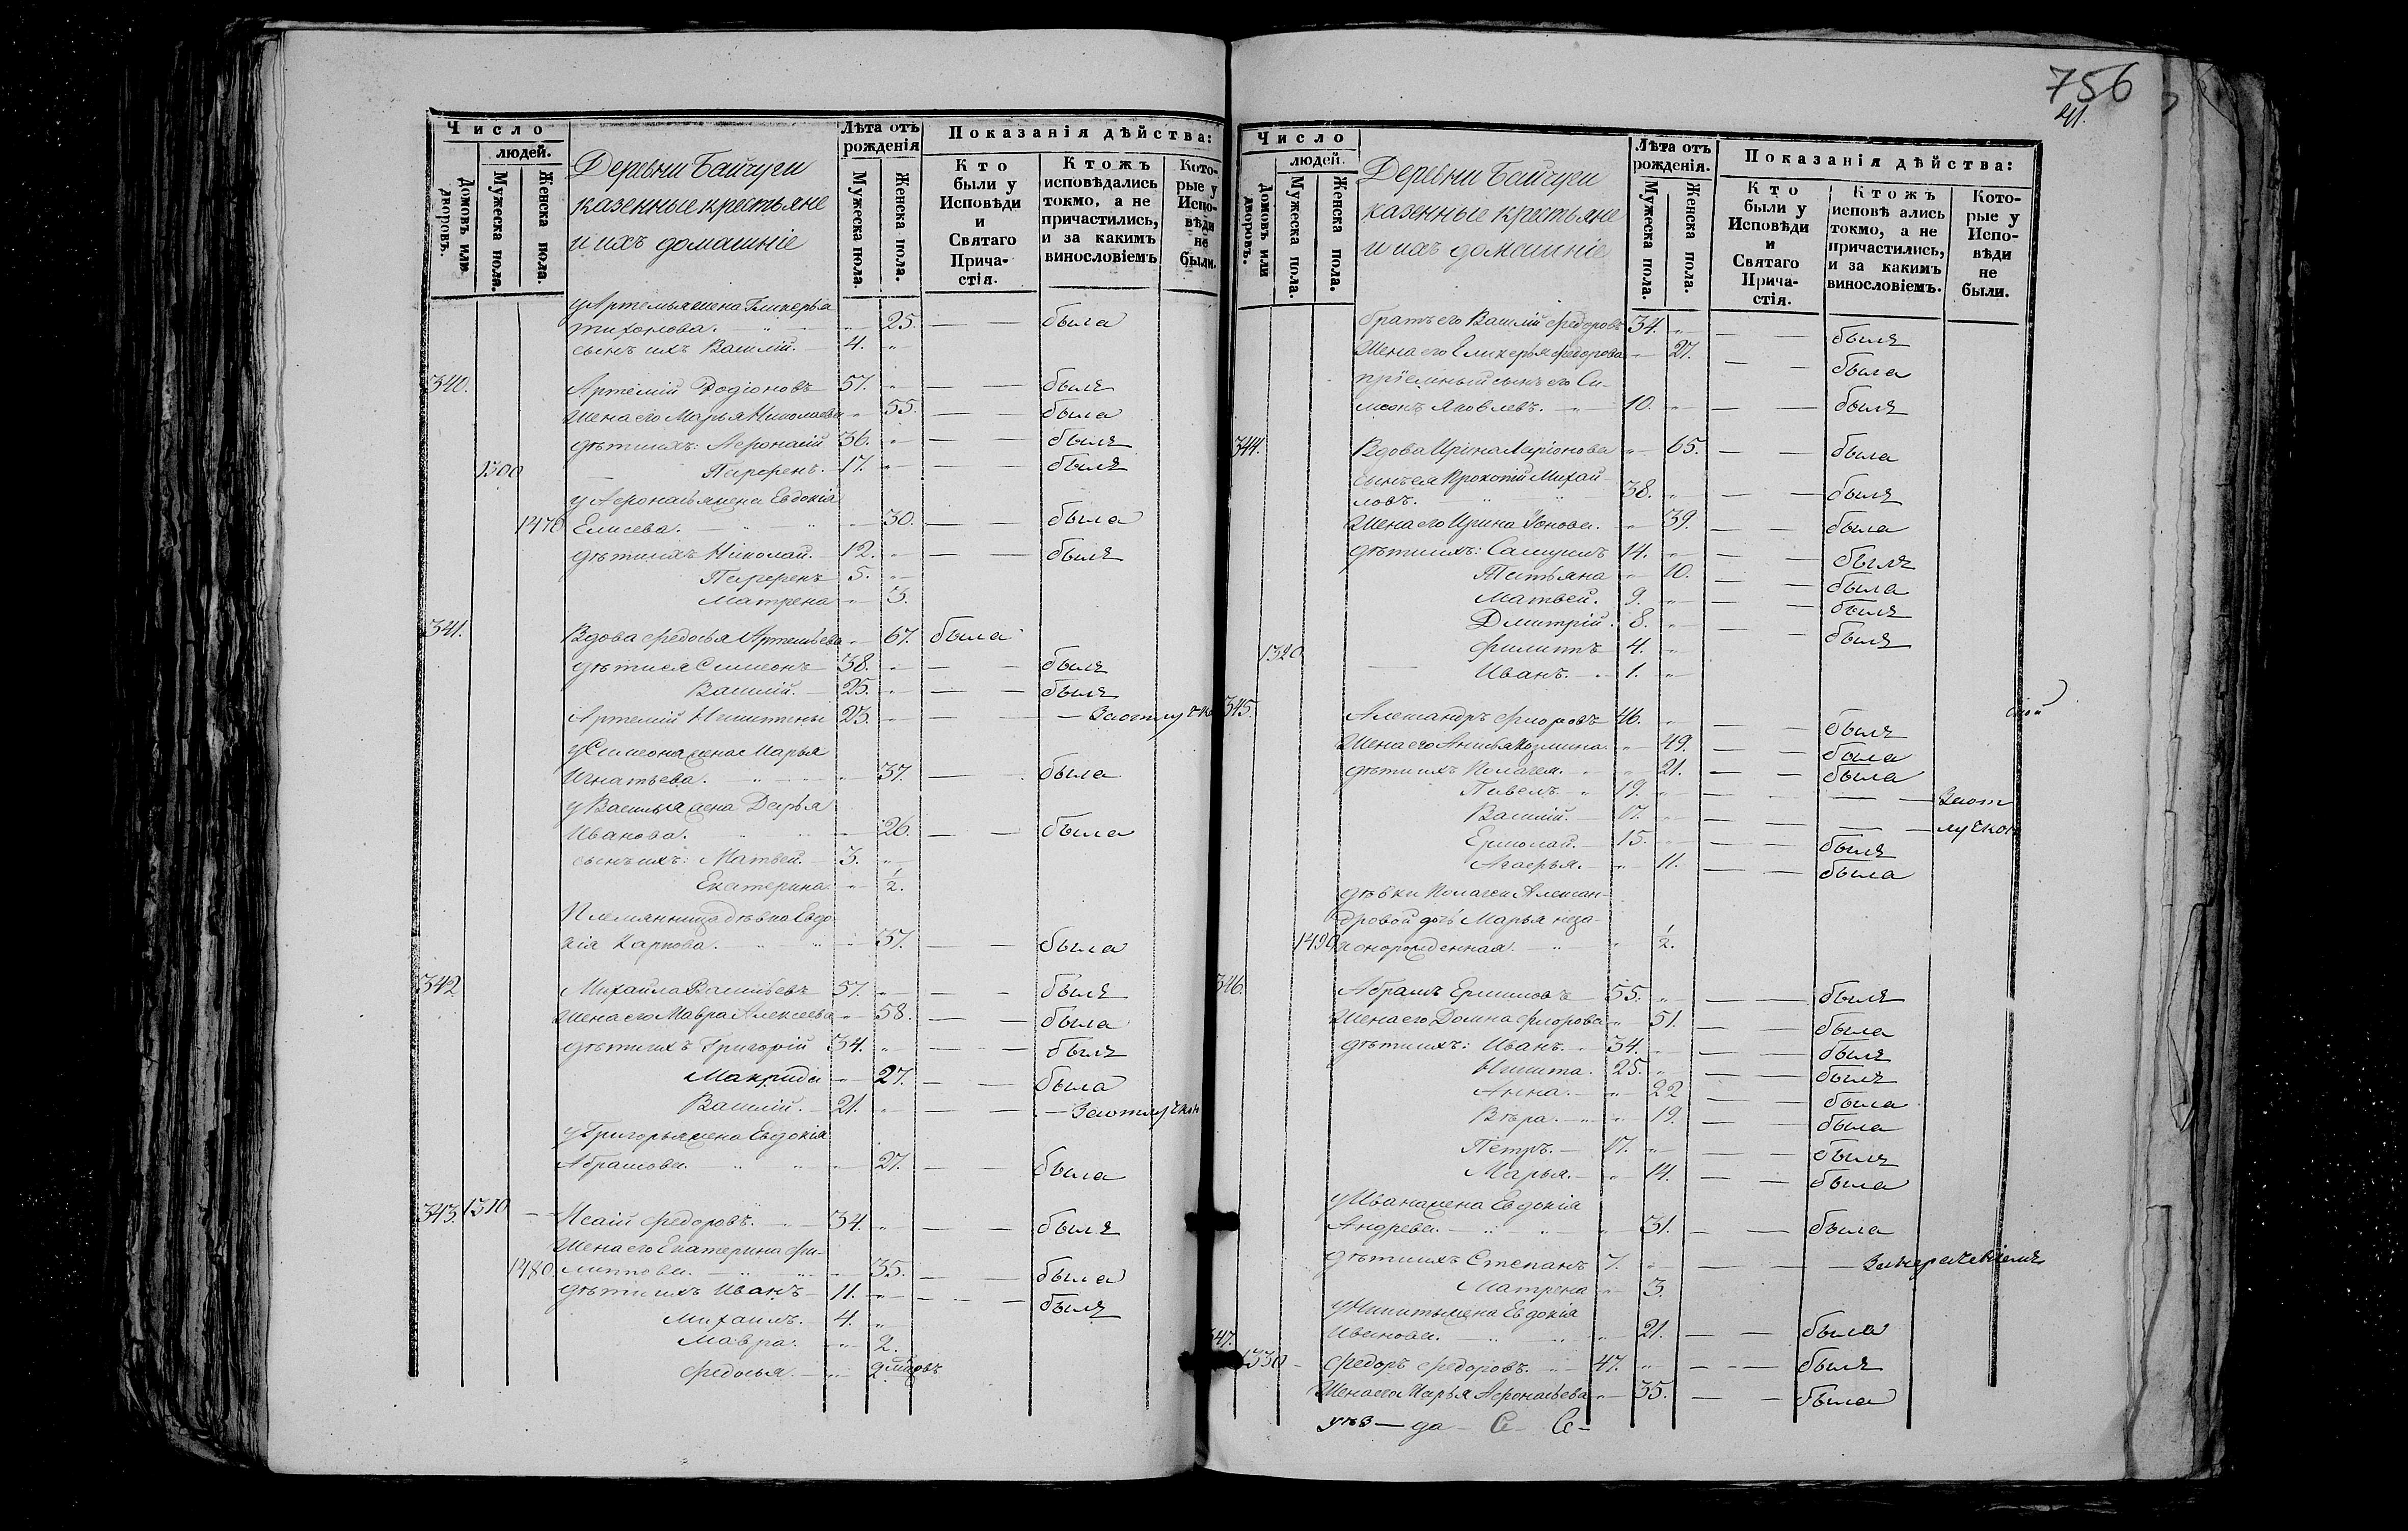 Число
людей.
Домовъ или дворовъ.
Мужеска пола.
Женска пола.
Деревни Байчуги
казенные крестьяне
и ихъ домашніе
Лѣта отъ рожденія
Мужеска пола.
Женска пола.
Показанія дѣйства:
Кто были у Исповѣди и Святаго Причастія.
Ктожъ исповѣдались токмо, а не причастились, и за какимъ винословіемъ
Которые у Исповѣди не были.
у Артемья жена Гликерья
Тихонова. 25. — — была
сынъ ихъ Василій. 4.
340. Артемій Родіоновъ 57. — — былъ
Жена его Марья Николаева 55. — — была
дѣти ихъ: Афонасій 36. — — былъ
1300 Парфенъ. 17. — — былъ
у Афонасья жена Евдокія
1470 Елисева. 30. — — была
дѣти ихъ Николай. 12. — — былъ
Парфенъ 5.
Матрена 3.
341. Вдова Федосья Артемьева 67. была
дѣти ея Симеонъ 38. — — былъ
Василій. 25. — — былъ
Артемій Никитинъ 23. — — За отлучкой
у Симеона жена Марья
Игнатьева. 37. — — была
у Василья жена Дарья
Иванова. 26. — — была
сынъ ихъ: Матвей. 3.
Екатерина 1/2.
Племянница дѣвка Евдо-
кія Карпова. 37. — — была
342 Михайла Васильевъ 57. — — былъ
Жена его Мавра Алексеева 58. — — была
дѣти ихъ Григорій 34. — — былъ
Макрида 27. — — была
Василій. 21. — — За отлучкой
у Григорья жена Евдокія
Абрамова. 27. — — была
343. 1310 Исаій Федоровъ. 34. — — былъ
Жена его Екатерина Фи-
1480. липпова. 35. — — была
дѣти ихъ Иванъ 11. — — былъ
Михаилъ. 4.
Мавра. 2.
Федосья. 2 мцовъ
756
Число
людей.
Домовъ или дворовъ.
Мужеска пола.
Женска пола.
Деревни Байчуги
казенные крестьяне
и ихъ домашніе
Лѣта отъ рожденія.
Мужеска пола.
Женска пола.
Показанія дѣйства:
Кто были у Исповѣди и Святаго Причастія.
Ктожъ исповѣ ались токмо, а не причастились, и за какимъ винословіемъ.
Которые у Исповѣди не были.
братъ его Василій Федоровъ 34. — — былъ
Жена его Гликерья Федорова 27. — — была
пріемный сынъ его Си-
меонъ Яковлевъ. 10. — — былъ
344. Вдова Ирина Ларіонова 65. — — была
сынъ ея Прокопій Михай
ловъ. 38. — — былъ
Жена его Ирина Іонова. 39. — — была
дѣти ихъ: Самуилъ 14. — — былъ
Татьяна 10. — — была
Матвей. 9. — — былъ
Дмитрій. 8. — — былъ
1320 Филиппъ 4.
Иванъ. 1.
345. Александръ Флоровъ 46. — — былъ
Жена его Анисья Козмина. 49. — — была
дѣти ихъ Пелагея. 21. — — была
Павелъ. 19. — — За от
Василій. 17. — — лучкой
Ермолай. 15. — — былъ
Агафья. 11. — — была
дѣвки Пелагеи Алексан-
дровой дочь Марья неза-
1490 конорожденная. 1/2.
346. Абрамъ Ермиловъ 55. — — былъ
Жена его Домна Флорова 51. — — была
дѣти ихъ: Иванъ. 34. — — былъ
Никита. 25. — — былъ
Анна. 22 — — была
Вѣра. 19. — — была
Петръ. 17. — — былъ
Марья. 14. — — была
у Ивана жена Евдокія
Андреева. 31. — — была
дѣти ихъ Степанъ 7. — — За нераченіемъ
Матрена 3.
у Никиты жена Евдокія
Иванова. 21. — — была
347. 1330 Федоръ Федоровъ. 47. — — былъ
Жена его Марья Афонасьева 35. — — была
уѣз — да —